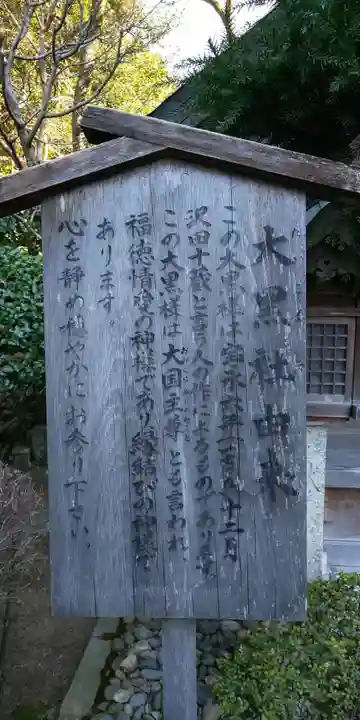 大黒社由来
この大黒様は宝永六年丑十二月
沢田十蔵と言う人の作によるものであります。
この大黒様は大国主尊とも言われ
福徳情愛の神様であり縁結びの神様で
あります。
心を静め穏やかにお参り下さい。